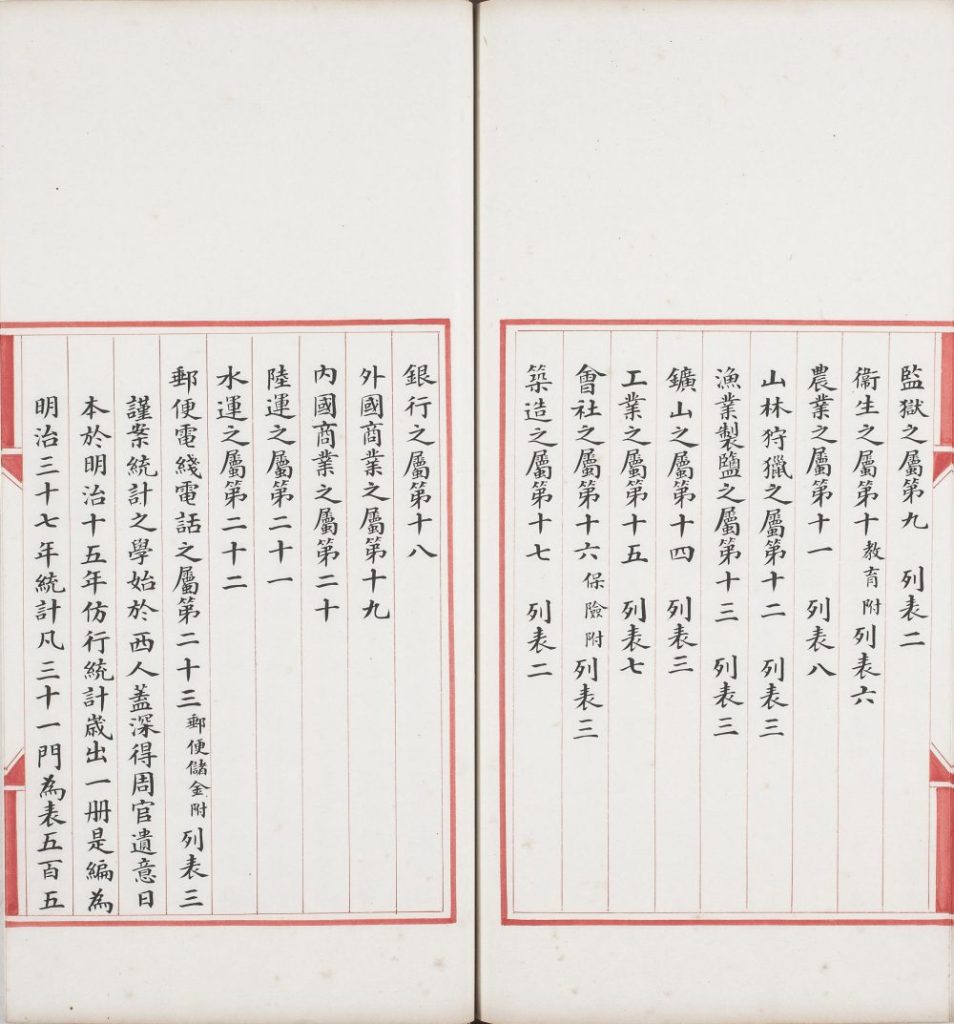 監獄之屬第九 列表二
衞生之屬第十教育附列表六
農業之屬第十一 列表八
山林狩獵之屬第十二 列表三
漁業製鹽之屬第十三 列表三
鑛山之屬第十四 列表三
工業之屬第十五 列表七
會社之屬第十六保險附列表三
築造之屬第十七 列表二
銀行之屬第十八
外國商業之屬第十九
內國商業之屬第二十
陸運之屬第二十一
水運之屬第二十二
郵便電綫電話之屬第二十三郵便儲金附列表三
謹案統計之學始於西人蓋深得周官遺意日
本於明治十五年仿行統計歲出一册是編為
明治三十七年統計凡三十一門為表五百五